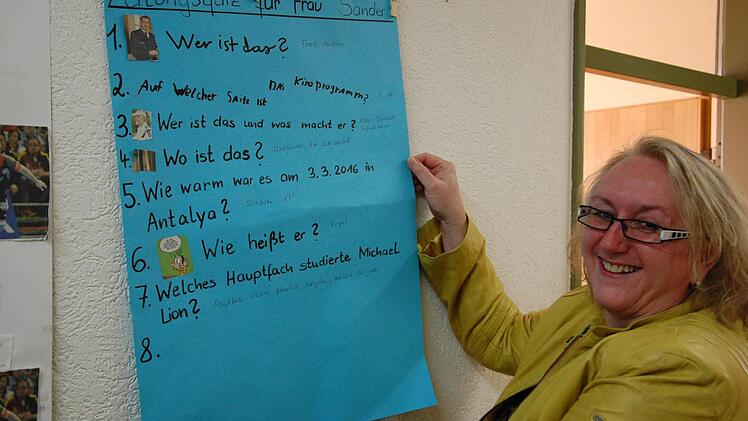 Zeitungsquiz für Frau Sander
1. Wer ist das?
2. Auf welcher Seite ist das Kinoprogramm? S. 16
3. Wer ist das und was macht er?
4. Wo ist das?
5. Wie warm war es am 3.3.2016 in
Antalya?
6. Wie heißt er?
7. Welches Hauptfach studierte Michael
Lion? Hauptfach
8.